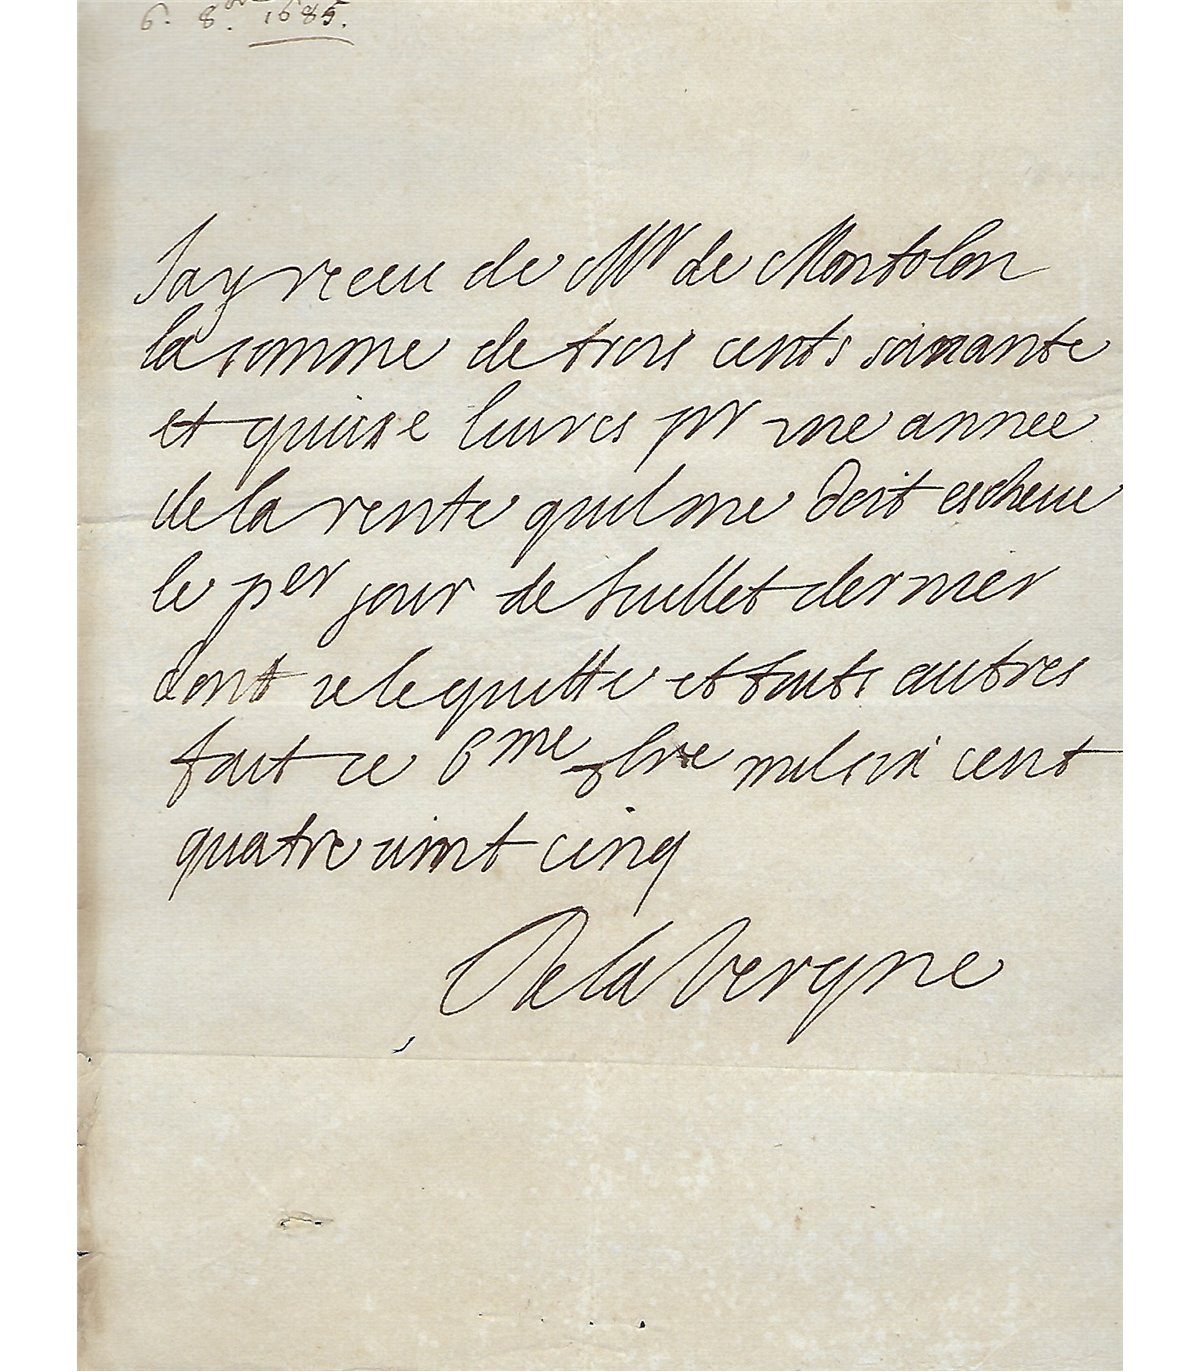 6. 8.bre 1685.
Jay receu de Mr de Montolon
la somme de trois cents soixante
et quinze livres pr une annee
de la rente quil me doit escheue
le per jour de Juillet dernier
dont je le quitte et touts autres
fait ce 6me 8bre mil six cent
quatre vint cinq
De la Vergne